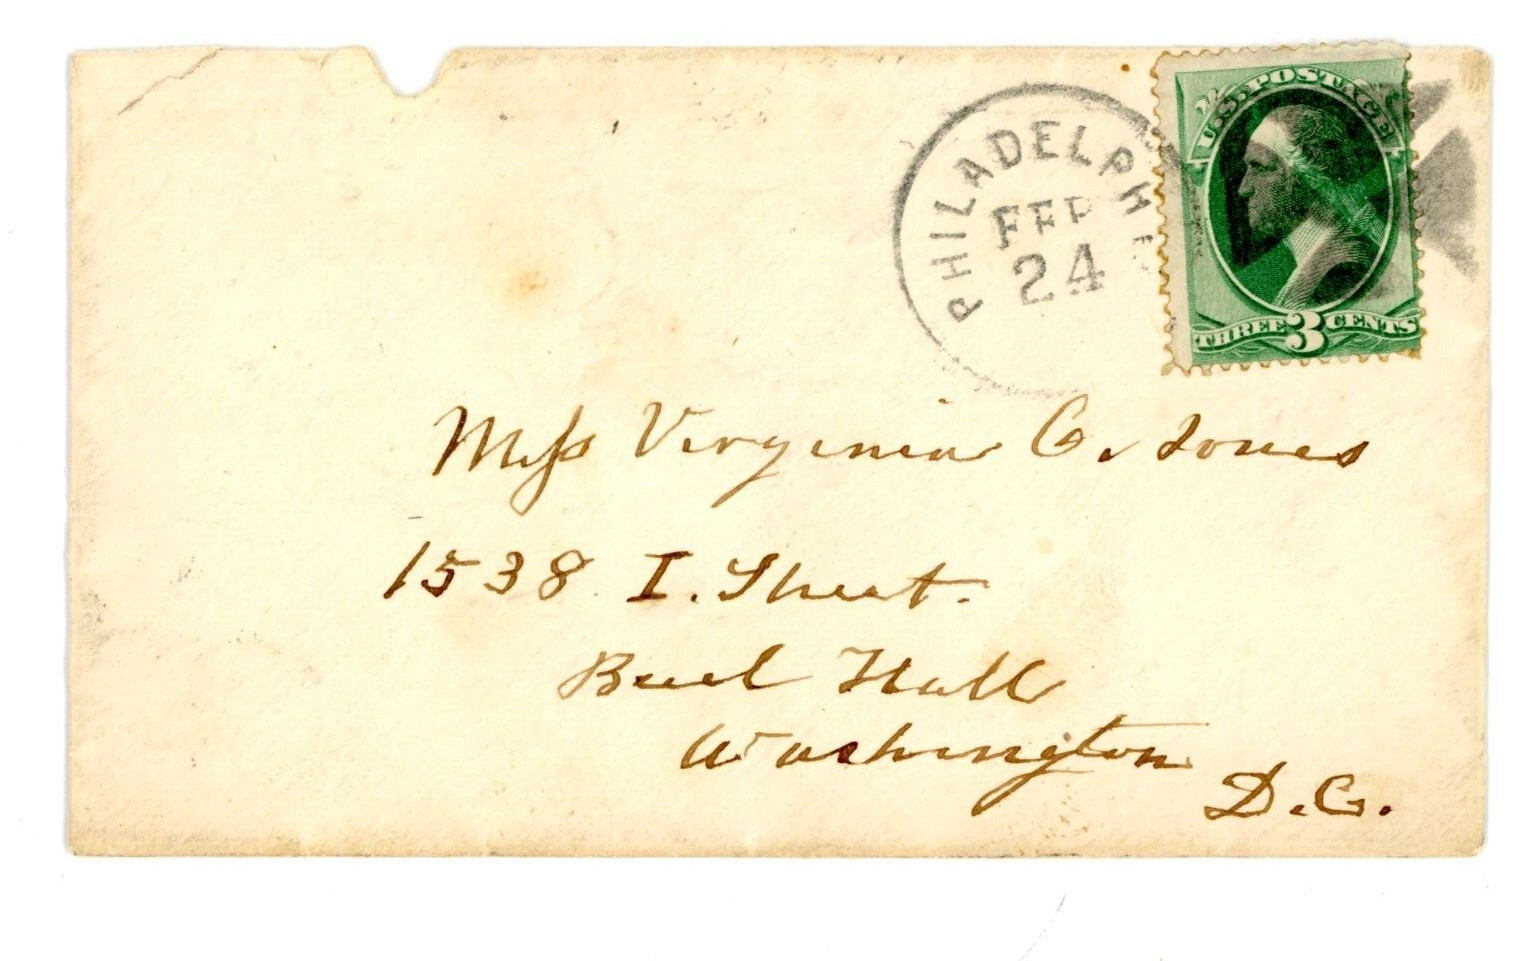 U.S. POSTAGE
PHILADELPHI
FEB
24
THREE 3 CENTS
Miss Virginia C. Jones
1538 I. Street.
Buel Hall
Washington
D.C.